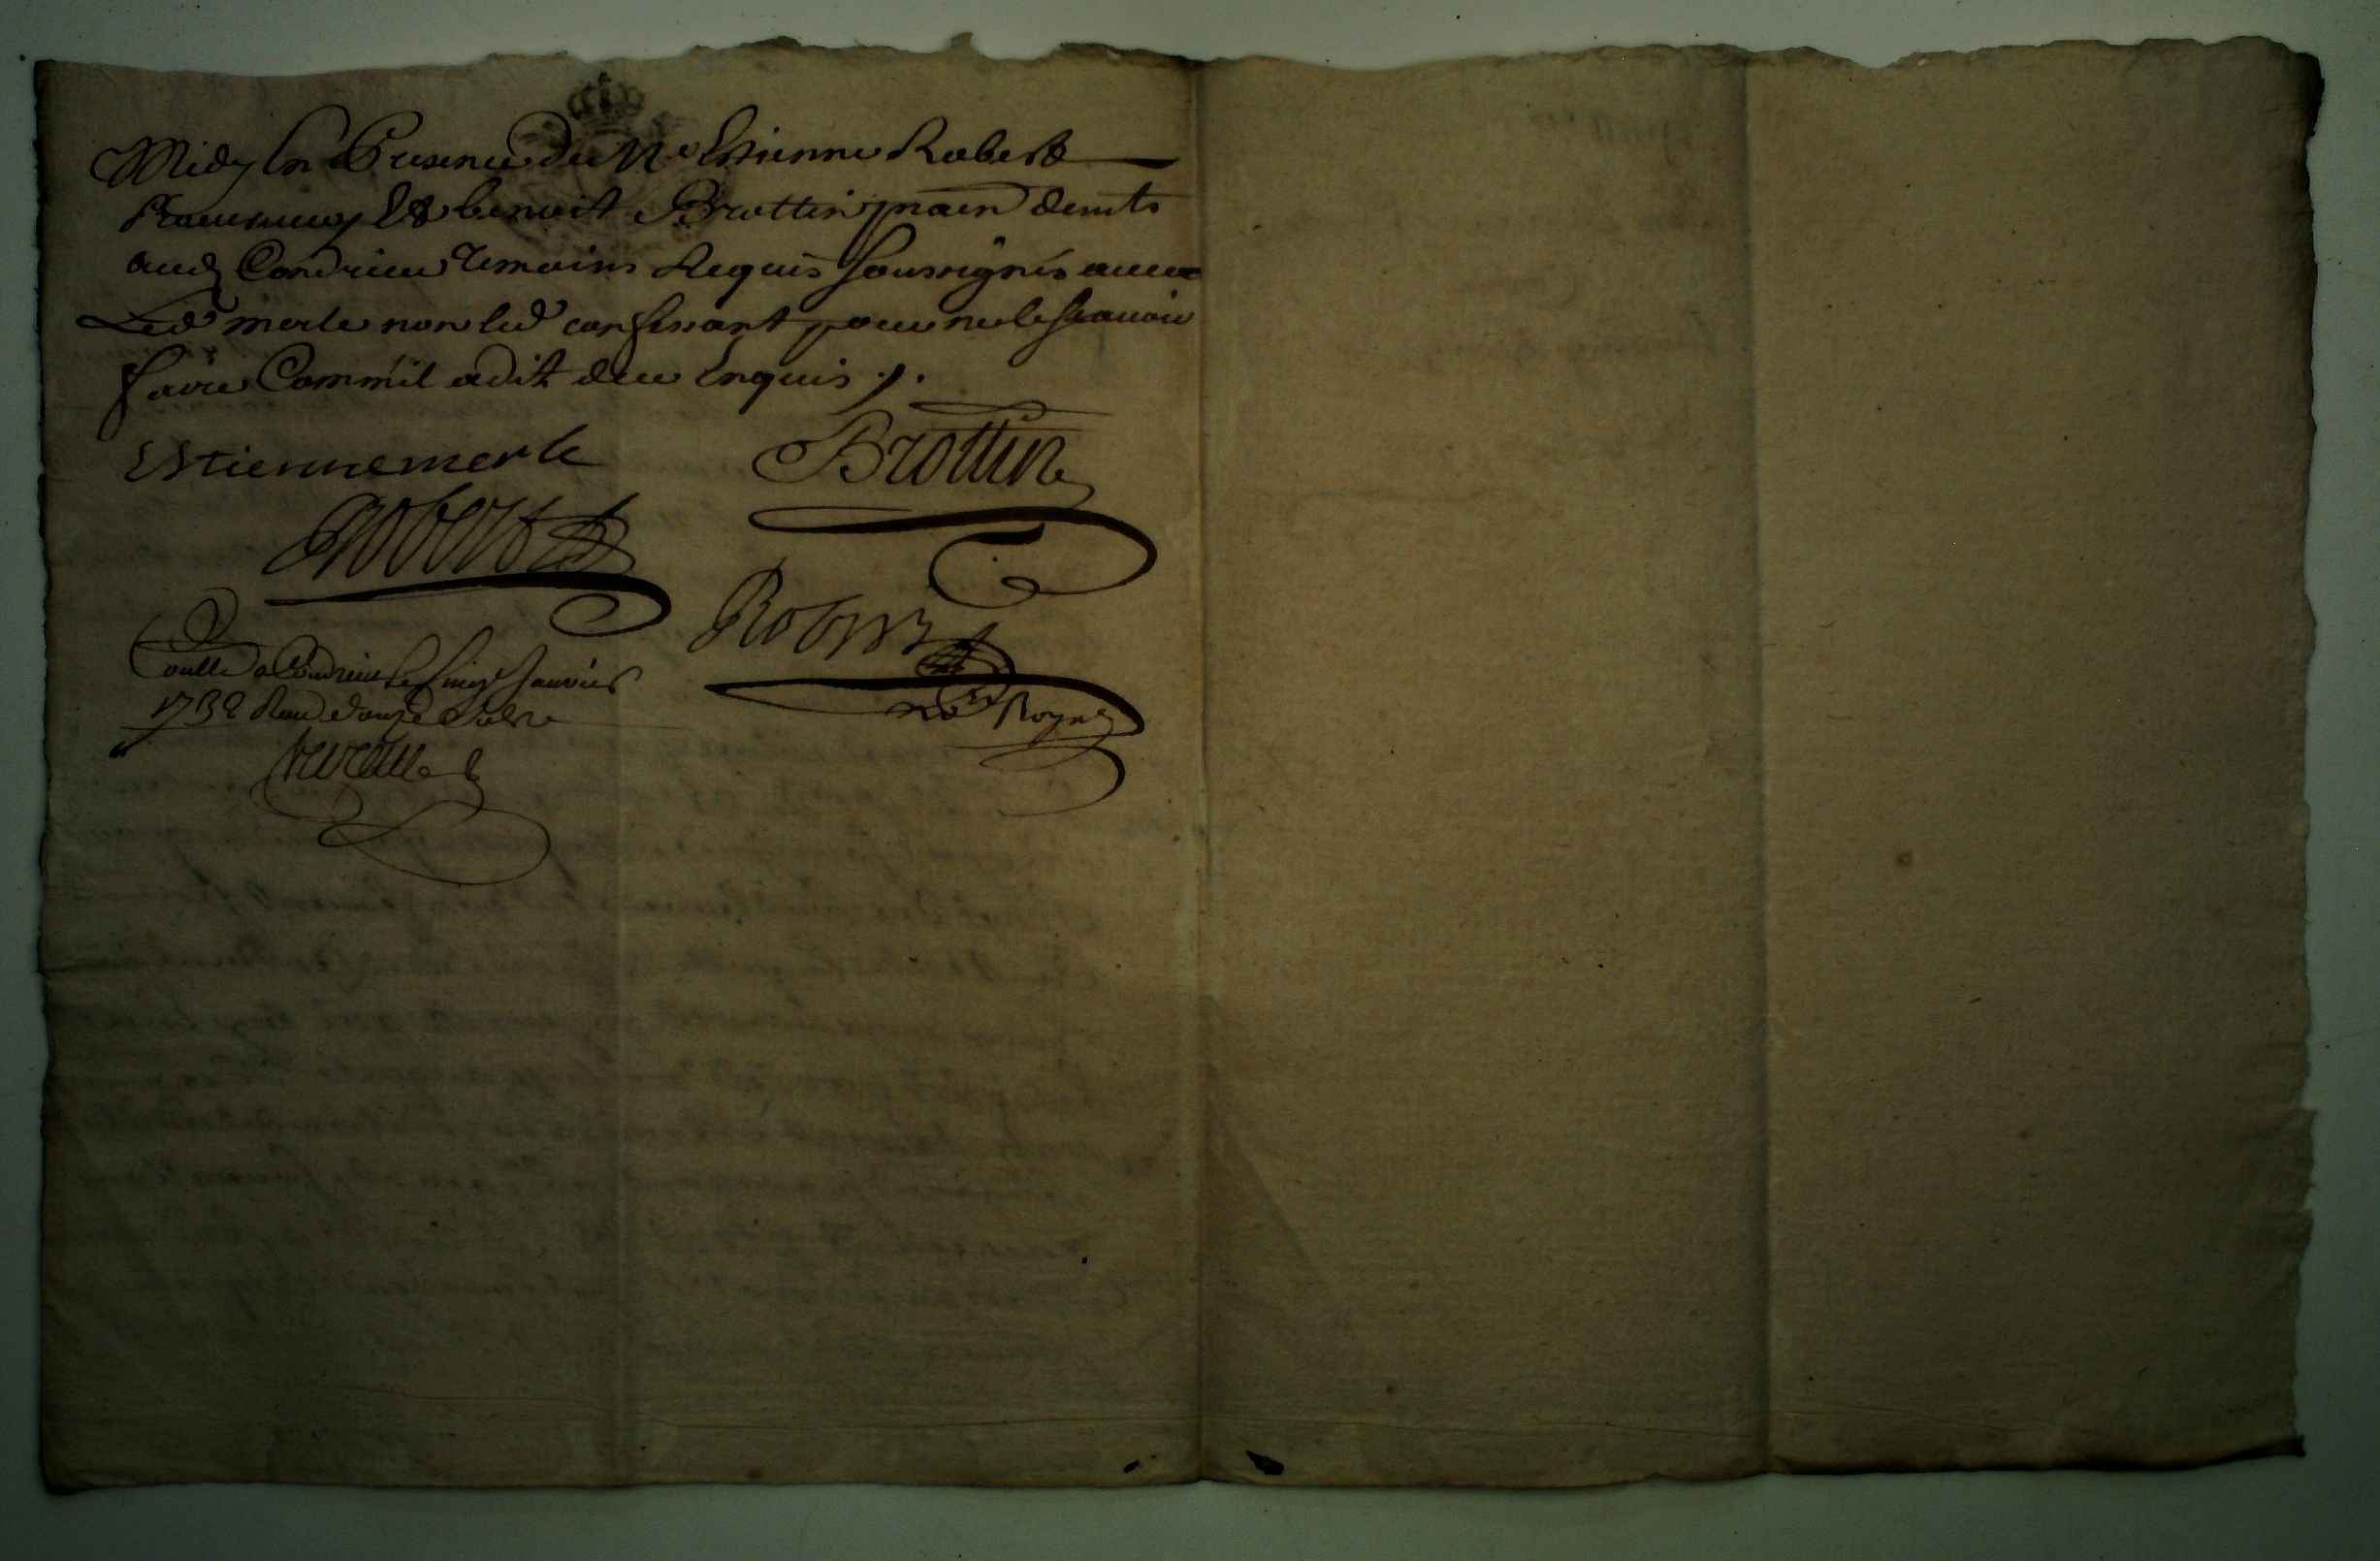 Midy En Presence de Me Estienne Robert
Et benoit Brottin demts
aud Condrieu temoins Requis soussignés avecq
Led merle non led confessant pour ne le sçavoir
faire Comm'il a dit de ce Enquis ./.
Estienne merle
Brottin
Robert
Robert
Conllé a Condrieu le Janvier
1732 Reçu douze sols
Nore Royal